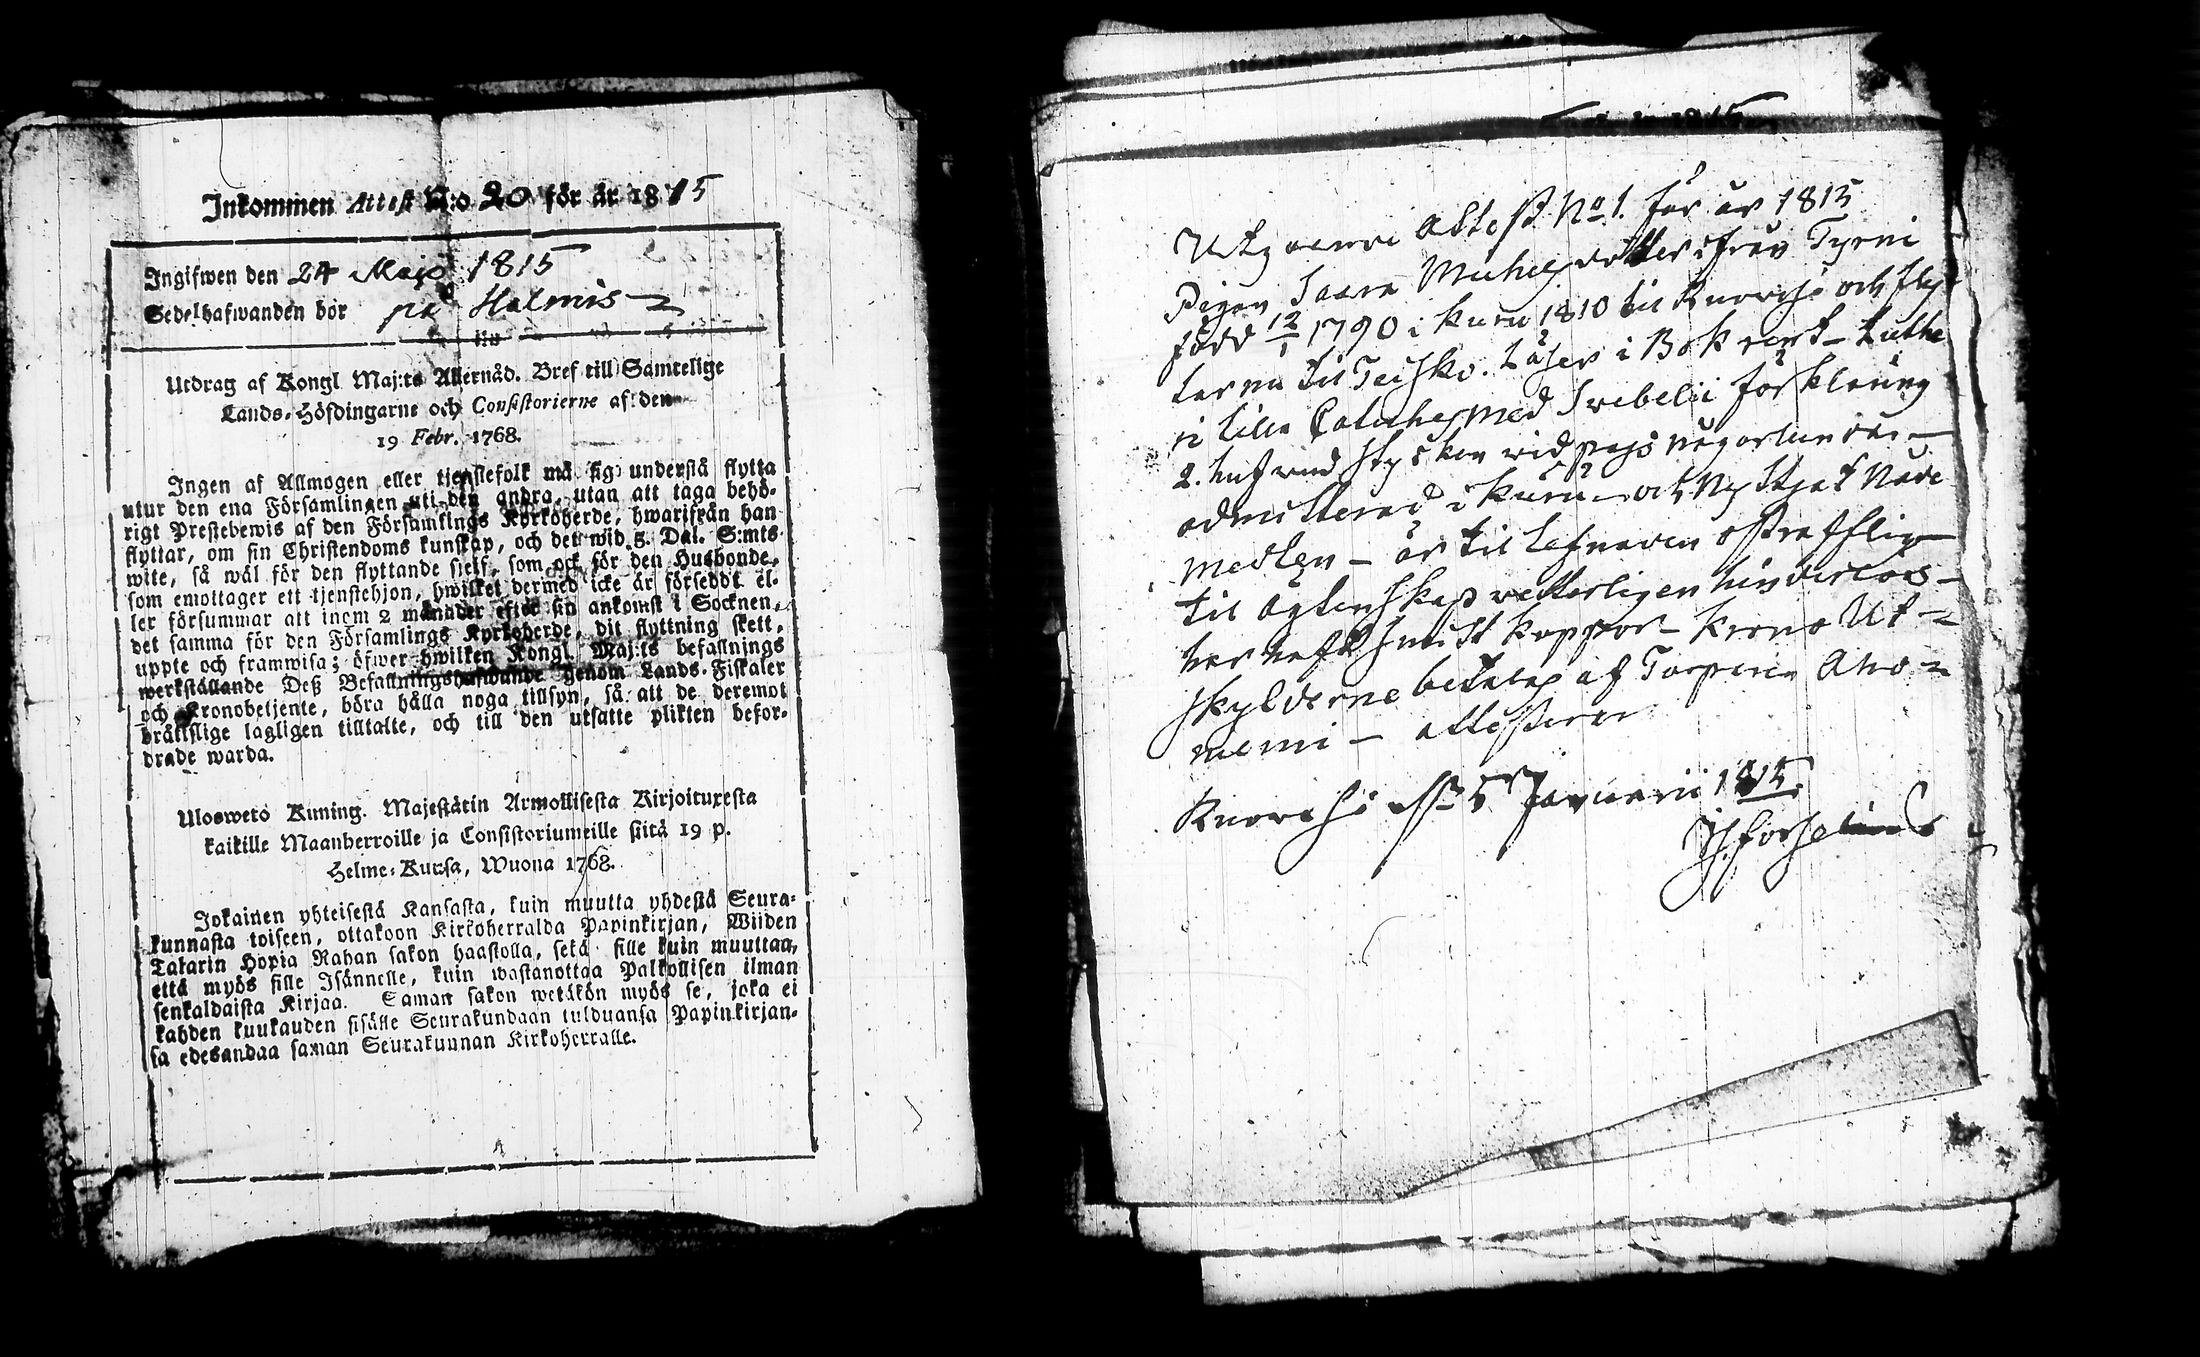 Inkommen Attest N:o 20 för år 1815
Ingifwen den 24 Maji 1815
Sedelhafwanden bor på Halmis
Utdrag af Kongl. Maj:ts Allernåd. Bref till Samtelige
Lands-Höfdingarne och Consistorierne af den
19 Febr. 1768.
Ingen af Allmogen eller tjenstefolk må sig understå flytta
utur den ena Församlingen uti den andra, utan att taga behö-
rigt Prestebewis af den Församlings Kyrkoherde, hwarifrån han
flyttar, om sin Christendoms kunskap, och det wid 5. Dal. S:mts
wite, så wäl för den flyttande sjelf, som ock för den Husbonde,
som emottager ett tjenstehjon, hwilket dermed icke är förseddt el-
ler försummar att inom 2 månader efter sin ankomst i Socknen,
det samma för den Församlings Kyrkoherde, dit flyttning skett,
uppte och framwisa; öfwer hwilken Kongl. Maj:ts befallnings
werkställande Deß Befallningshafwande genom Lands-Fiskaler
och Kronobetjente, böra hålla noga tillsyn, så att de deremot
bråttslige lagligen tilltalte, och till den utsatte plikten befor-
drade warda.
Uloswetö Kuning. Majestätin Armollisesta Kirjoituxesta
kaikille Maanherroille ja Consistoriumeille siitä 19 p.
Helme-Kuusa, Wuona 1768.
Jokainen yhteisestä Kansasta, kuin muutta yhdestä Seura-
kunnasta toiseen, ottakoon Kirkoherralda Papinkirjan, Wiiden
Talarin Hopia Rahan sakon haastolla, sekä sille kuin muuttaa,
että myös sille Isännelle, kuin wastanottaa Palkollisen ilman
senkaldaista Kirjaa. Saman sakon wetäkön myös se, joka ei
kahden kuukauden sisälle Seurakundaan tulduansa Papinkirjan-
sa edesandaa saman Seurakunnan Kirkoherralle.
Attest No 1. för år 1815
Pigan Saara Michelsdotter ifrån Tyrni
född 12/1 1790 i Kuru 1810 til Ruovesi och flyt
tar nu til Teisko. Läser i Bok rent Luthe
ri lilla Cateches med Swebelii förklaring
2. hufvud stycken
admitterad i Kuru och Nyttjat Nåde
medlen - är til lefnaden ostrafflig
til ägtenskap vetterligen hinderlös -
har haft smitt koppor - Krono Ut-
skylderne betalas af Torparen Aho-
niemi - attesterar
Ruovesi d. 5 Januarii 1815.